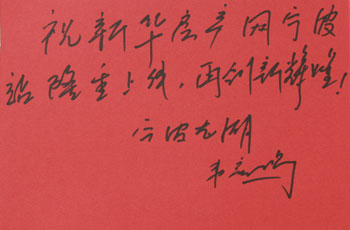 祝新华房产网宁波
站隆重上线,再创新辉煌!
宁波龙湖
韦